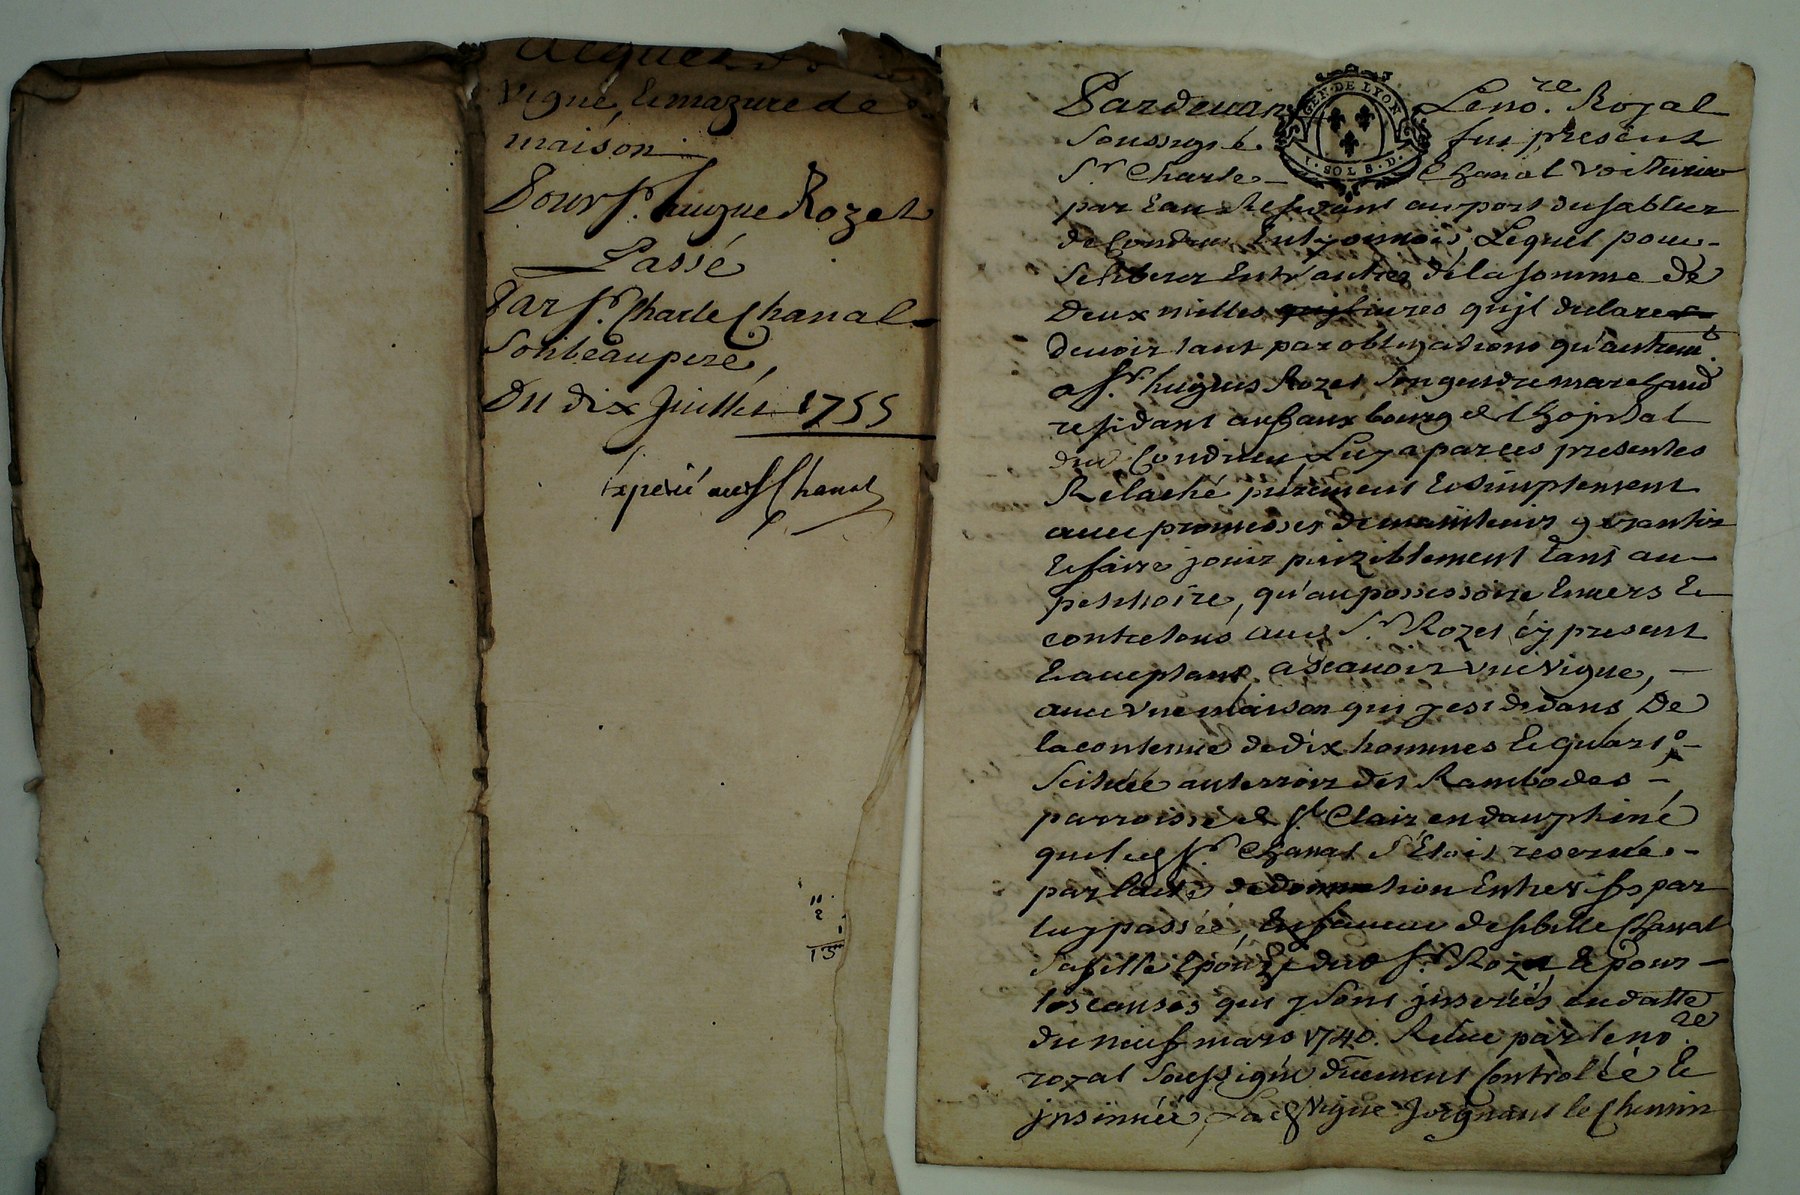 Acquet
vigne, & mazure de
maison
Pour Sr. hugue Rozet
Passé
Par Sr. Charle Chanal
Son beau pere,
Du dix Juillet 1755
Expedié aud Sr Chanal
11
2
13
GEN. DE LYON
1. SOL 8. D.
Pardevant Le no.re Royal
Soussigné fut présent
Sr. Charle Chanal voiturier
par Eau résidant au port du sablier
de Condrieu En lyonnois, Lequel pour
se liberer Entr'autres de la somme de
Deux milles livres qu'jl declare
devoir tant par obligations qu'autremt.
a Sr. hugues Rozet son gendre marchand
residant au faux bourg de l'hopital
dud Condrieu Luy a par ces presentes
Relaché purement & simplement
avec promesses de maintenir garantir
& faire jouir paiziblement tant au
petitoire, qu'au possessoire Envers &
contre tous aud Sr Rozet cy present
& acceptant, a scavoir une vigne,
avec une maison qui y est dedans De
la contenue de dix hommes & quart,
Scituée au terroir des Rambodes
parroisse de St. Clair en dauphiné
que led Sr. Chanal s'Etoit reservée
par l'acte de donnation Entre vifs par
luy passée, En faveur de sibille Chanal
sa fille Epouze dud Sr. Rozet, & pour
les causes qui y sont jnserées en datte
du neuf mars 1740. Reçue par le no.re
royal soussigné düement Controllée &
jnsinuée, lad vigne Joignant le Chemin